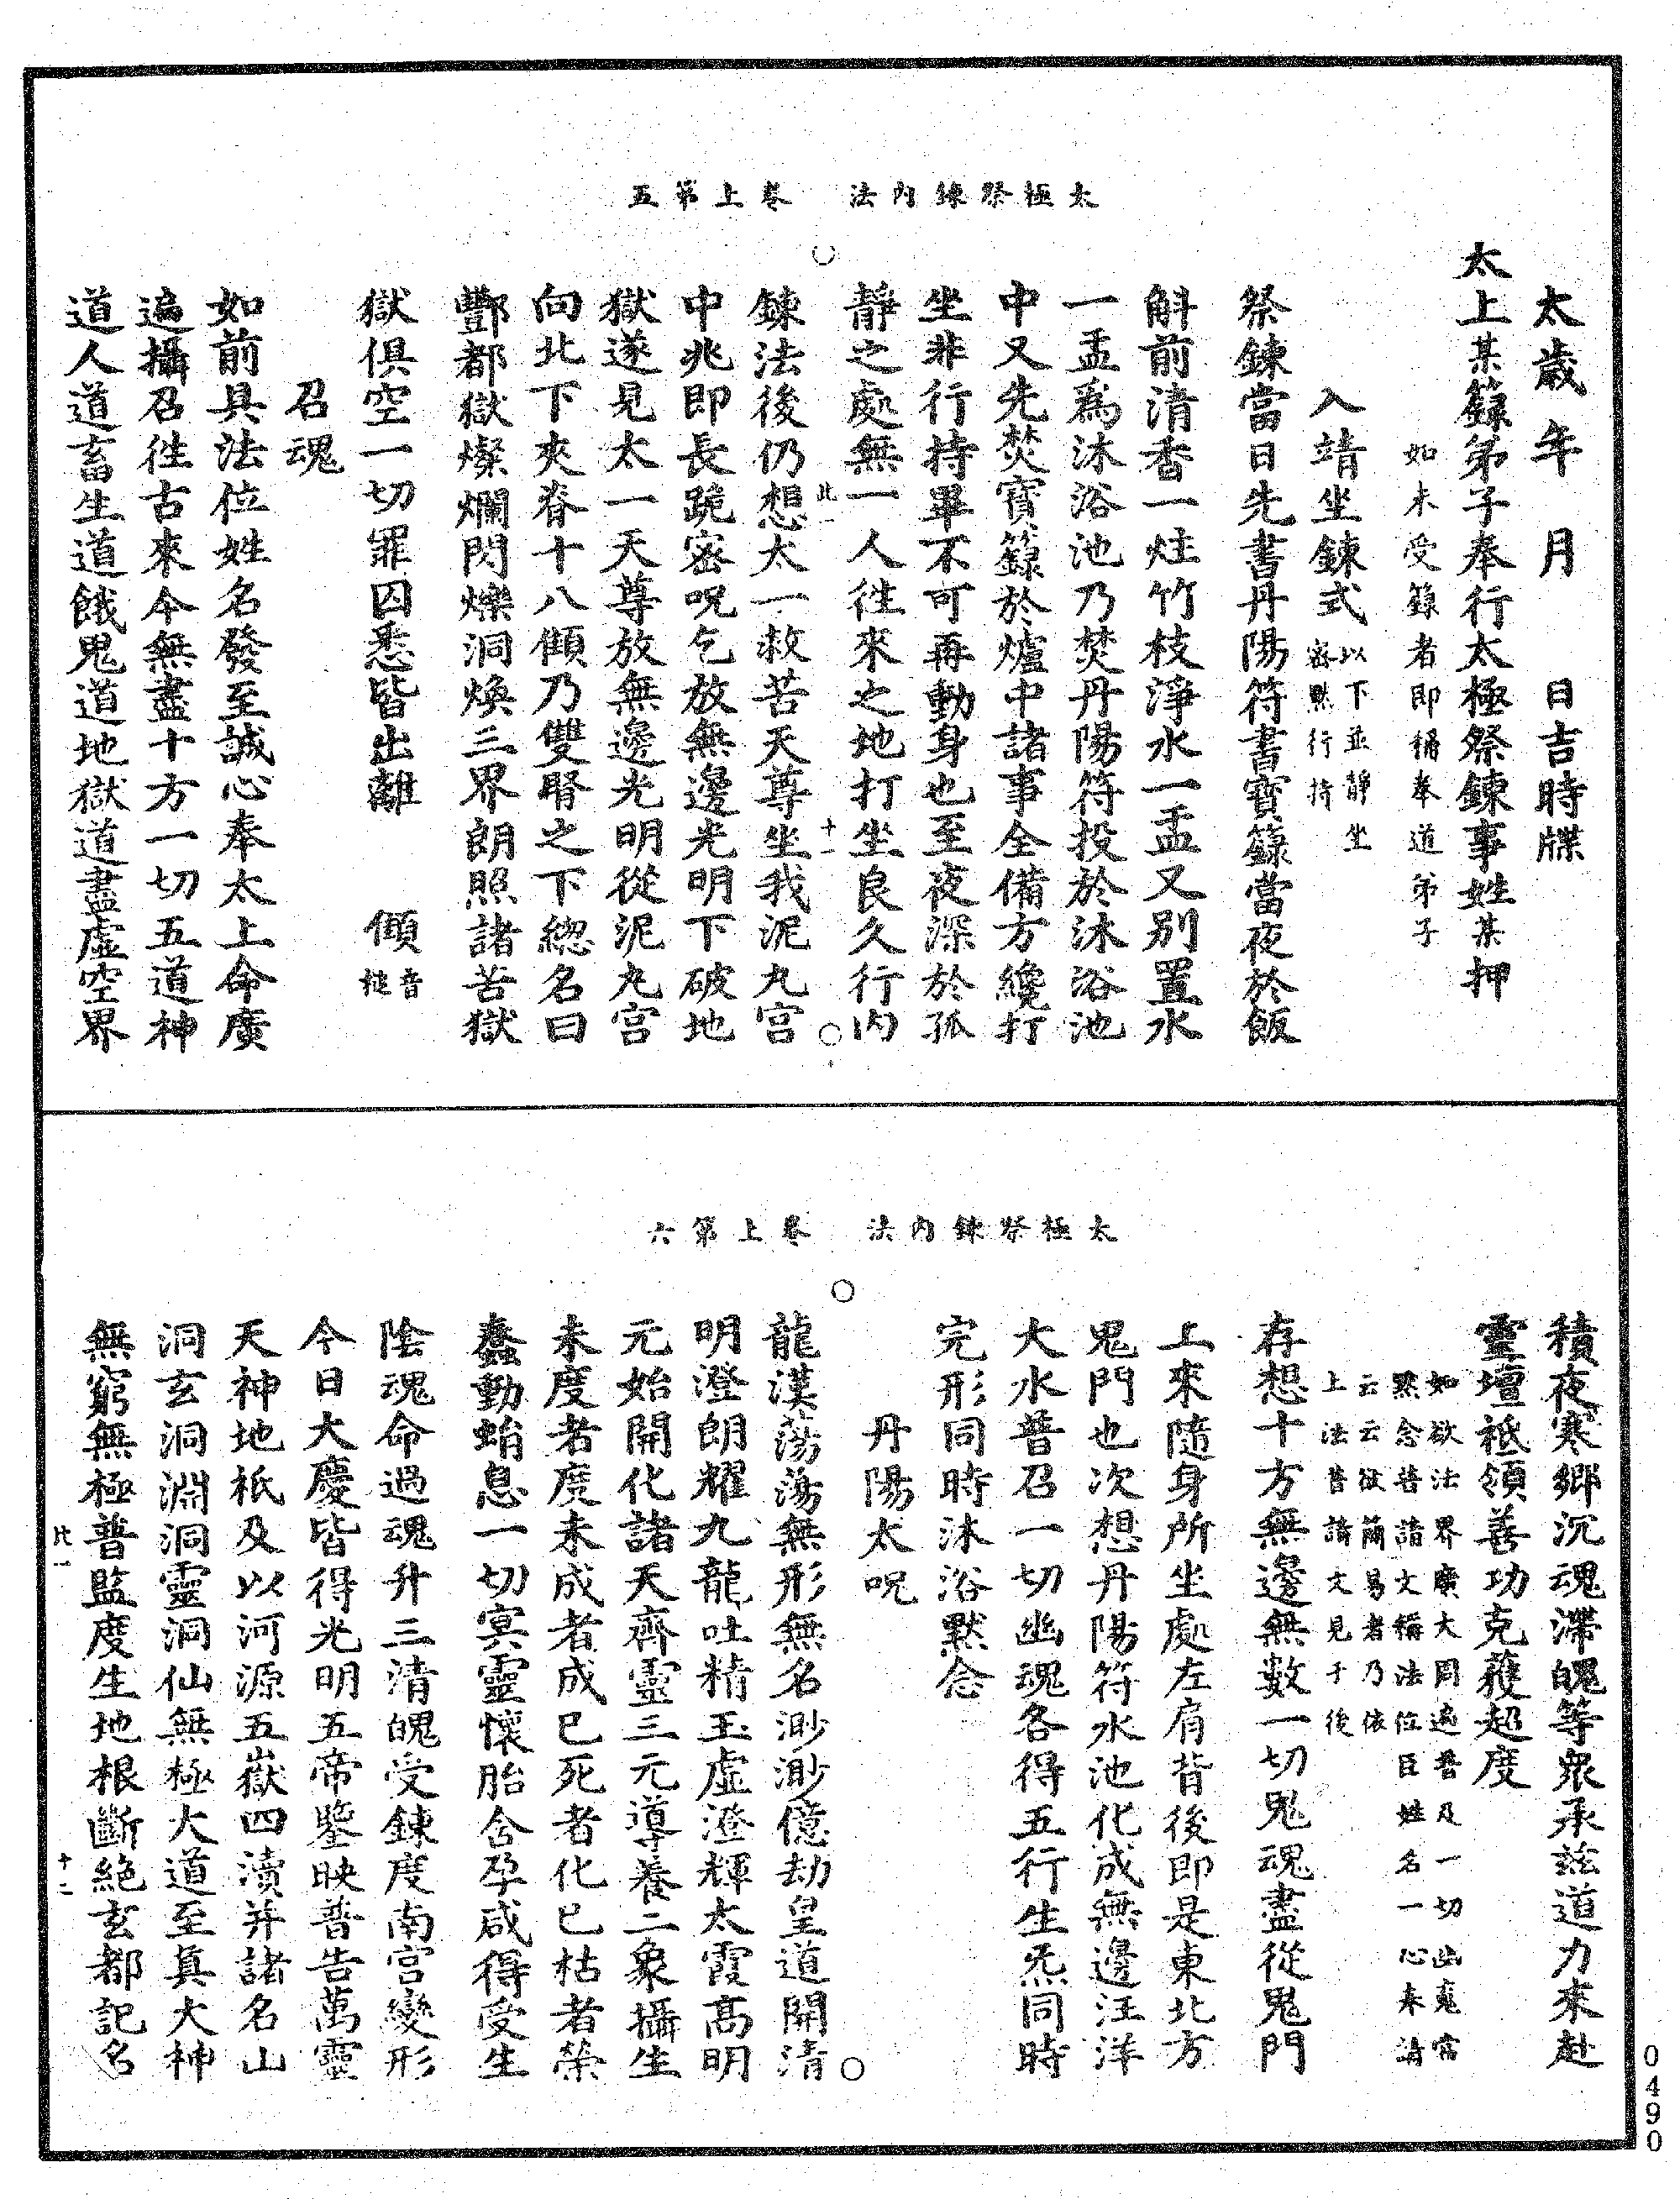 太極祭鍊內法　卷上第五
太歲年　月　　日吉時牒
太上某籙弟子奉行太極祭鍊事姓某押
如未受籙者即稱奉道弟子
入靖坐鍊式以下並靜坐密默行持
祭鍊當日先書丹陽符書寶籙當夜於飯
斛前清香一炷竹枝淨水一盂又別置水
一盂為沐浴池乃焚丹陽符投於沐浴池
中又先焚寶籙於爐中諸事全備方纔打
坐非行持畢不可再動身也至夜深於孤
靜之處無一人徃來之地打坐良久行內
此一　十一
鍊法後仍想太一救苦天尊坐我泥丸宮
中兆即長跪密呪乞放無邊光明下破地
獄遂見太一天尊放無邊光明從泥丸宮
向北下夾脊十八顀乃雙腎之下總名曰
酆都獄燦爛閃爍洞煥三界朗照諸苦獄
獄俱空一切罪囚悉皆出離　　顀音槌
召魂
如前具法位姓名發至誠心奉太上命廣
遍攝召徃古來今無盡十方一切五道神
道人道畜生道餓鬼道地獄道盡虛空界
太極祭鍊內法　卷上第六
積夜寒鄉沉魂滯魄等衆承茲道力來赴
靈壇祇領善功克獲超度
如欲法界廣大周遍普及一切幽寃當
默念普請文稱法位臣姓名一心奉請
云云欲簡易者乃依
上法普請文見于後
存想十方無邊無數一切鬼魂盡從鬼門
上來隨身所坐處左肩背後即是東北方
鬼門也次想丹陽符水池化成無邊汪洋
大水普召一切幽魂各得五行生炁同時
完形同時沐浴默念
丹陽太呪
龍漢蕩蕩無形無名渺渺億劫皇道開清
明澄朗耀九龍吐精玉虛澄輝太霞高明
元始開化諸天齊靈三元導養二象攝生
未度者度未成者成已死者化已枯者榮
蠢動蛸息一切冥靈懷胎含孕咸得受生
陰魂命過魂升三清魄受鍊度南宮變形
今日大慶皆得光明五帝鑒映普告萬靈
天神地祇及以河源五嶽四瀆并諸名山
洞玄洞淵洞靈洞仙無極大道至真大神
無窮無極普監度生地根斷絕玄都記名
此一　十二
0490